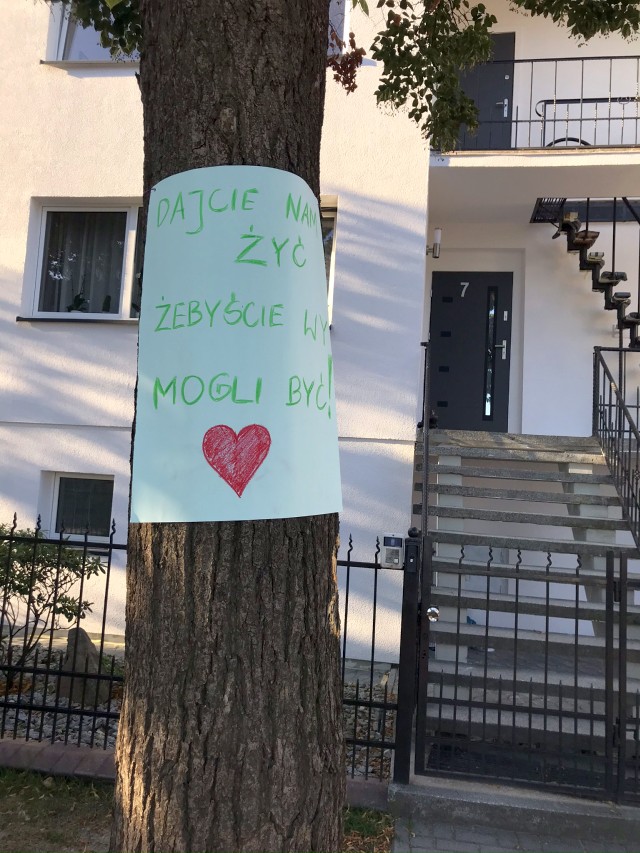 DAJCIE NAM
ŻYĆ
ŻEBYŚCIE WY
MOGLI BYĆ!
7